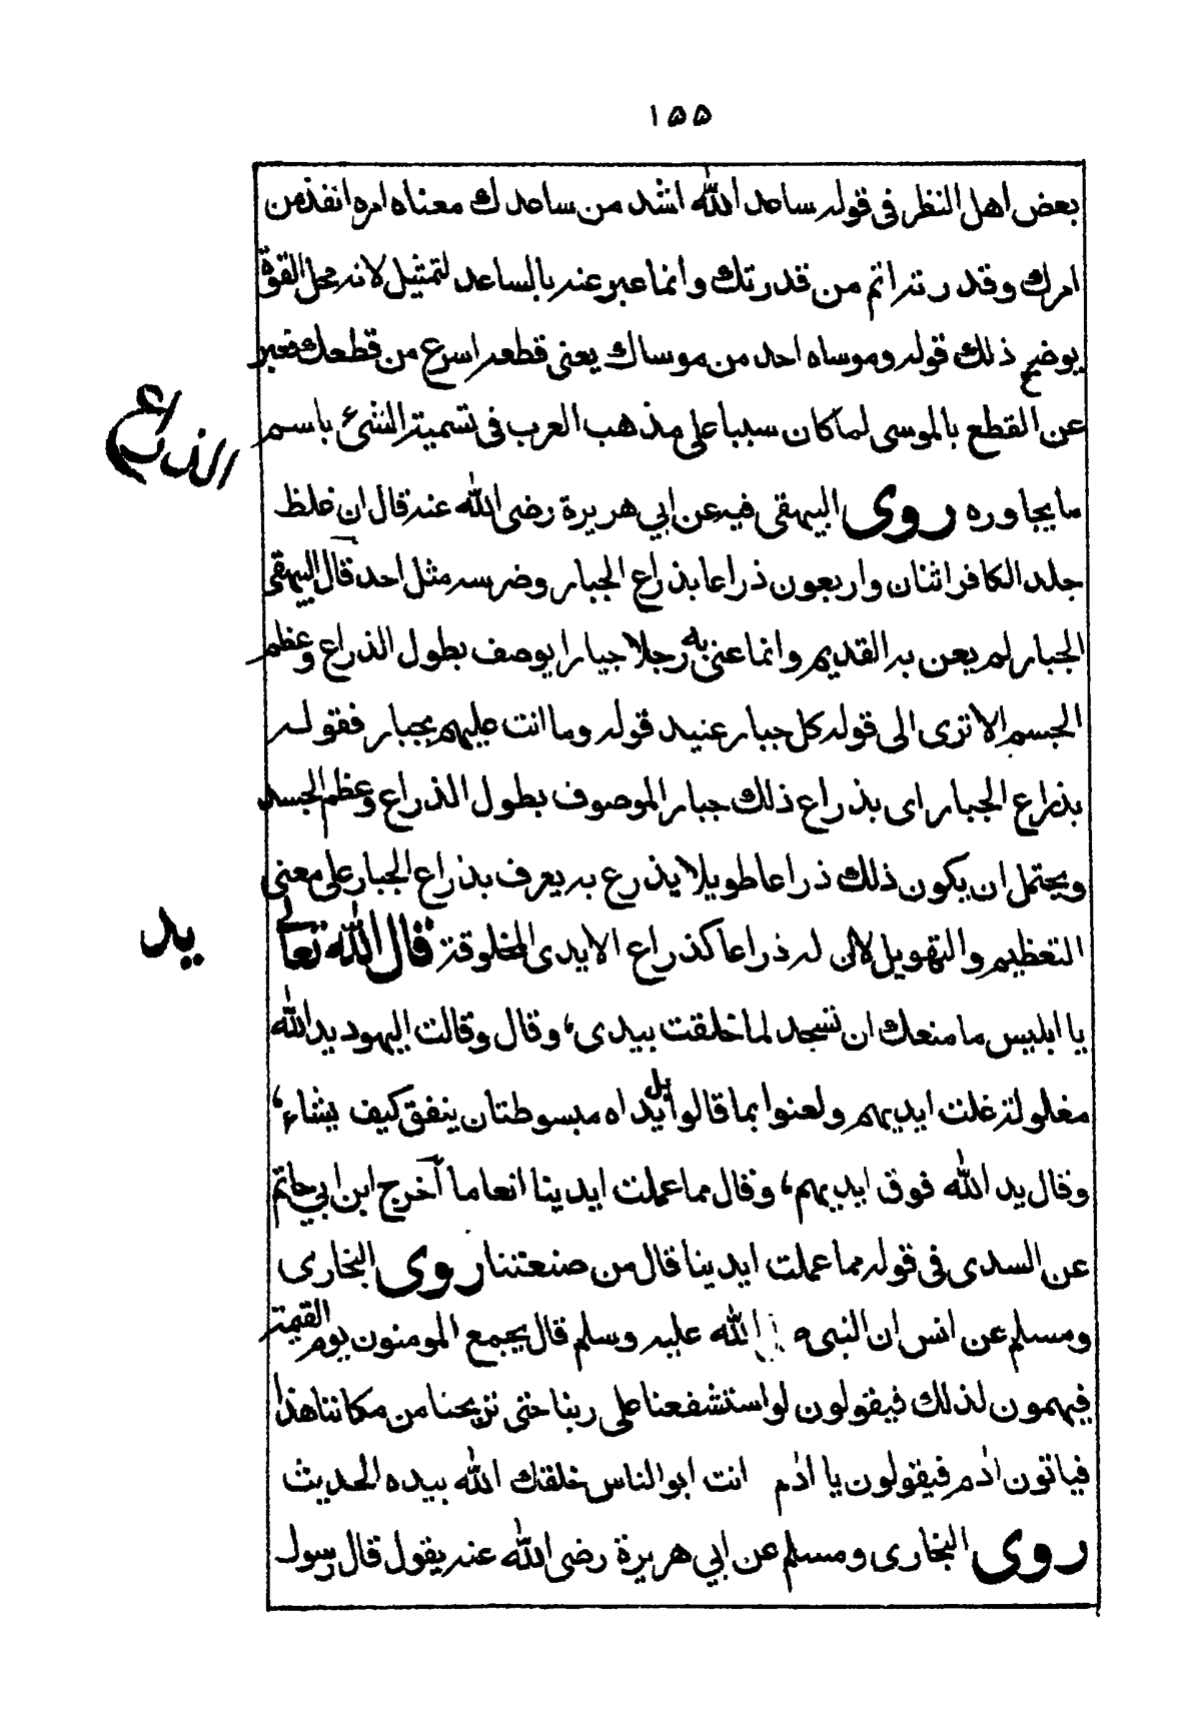 ۱۵۵
بعض اهل النظر فى قوله ساعد الله اشد من ساعدك معناه امره انفذ من
امرك وقدرته اتم من قدرتك وانما عبر عنه بالساعد لتمثيل لانه محل القوة
يوضح ذلك قوله وموساه احد من موساك يعنى قطعه اسرع من قطعك فعبر
عن القطع بالموسى لما كان سببا على مذهب العرب فى تسمية الشئ باسم
الذراع
ما يجاوره روى البيهقى فيه عن ابي هريرة رضى الله عنه قال ان غلظ
جلد الكافر اثنان واربعون ذراعا بذراع الجبار وضرسه مثل احد قال البيهقى
الجبار لم يعن به القديم وانما عنى به رجلا جبارا يوصف بطول الذراع وعظم
الجسم الا ترى الى قوله كل جبار عنيد قوله وما انت عليهم بجبار فقوله
بذراع الجبار اى بذراع ذلك جبار الموصوف بطول الذراع وعظم الجسد
ويحتمل ان يكون ذلك ذراعا طويلا يذرع به يعرف بذراع الجبار على معنى
التعظيم والتهويل لا لن له ذراعا كذراع الايدى المخلوقة قال الله تعالى
يد
يا ابليس ما منعك ان تسجد لما خلقت بيدى، وقال وقالت اليهود يد الله
مغلولة غلت ايديهم ولعنوا بما قالوا بل يداه مبسوطتان ينفق كيف يشاء،
وقال يد الله فوق ايديهم، وقال مما عملت ايدينا انعاما آخرج ابن ابي حاتم
عن السدى فى قوله مما عملت ايدينا قال من صنعتنا روى البخارى
ومسلم عن انس ان النبى الله عليه وسلم قال يجمع المومنون يوم القيمة
فيهمون لذلك فيقولون لو استشفعنا على ربنا حتى تريحنا من مكاننا هذا
فياتون ادم فيقولون يا ادم انت ابو الناس خلقك الله بيده الحديث
روى البخارى ومسلم عن ابي هريرة رضى الله عنه يقول قال رسول